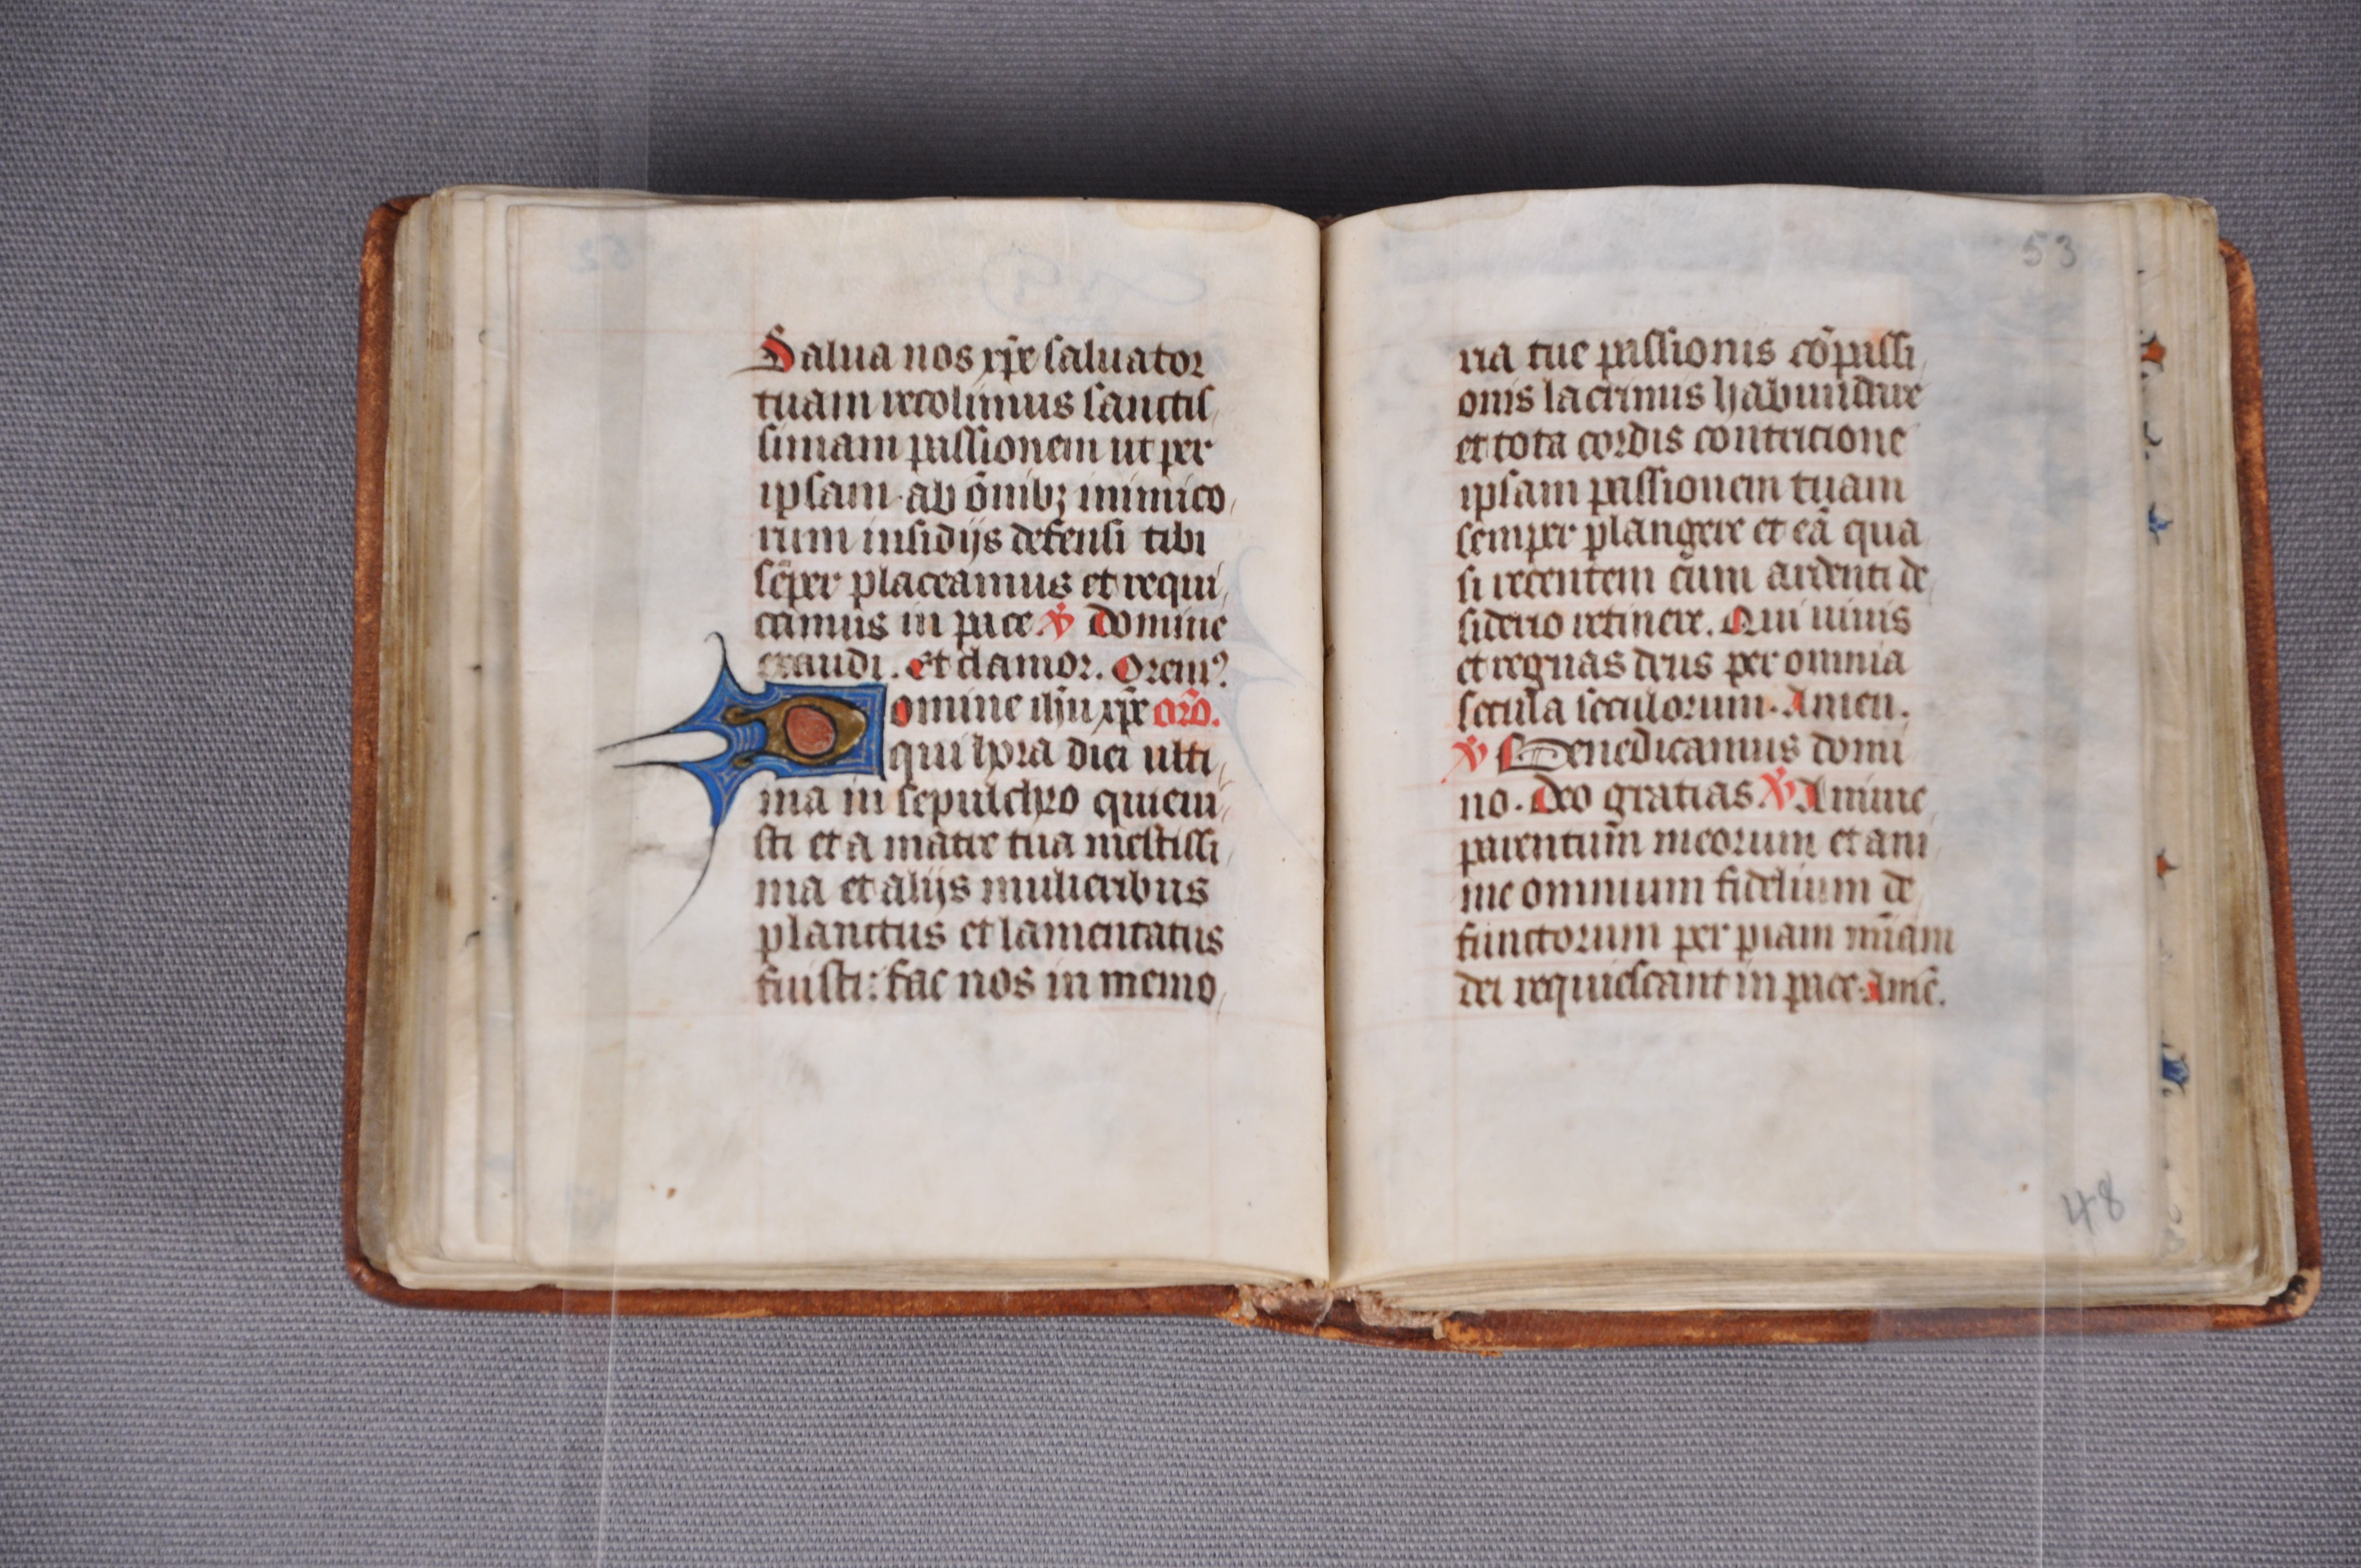 Salua nos xp̄e saluator
tuam recolimus sanctis
simam passionem ut per
ipsam ab om̄ibꝫ inimico
rum insidijs defensi tibi
sēper placeamus et requi
camus in pace ℣ Domine
exaudi. Et clamor. Oremꝰ
Domine ihū xp̄e oro̅.
qui hora diei ulti
ma in sepulchro quieui
sti et a matre tua mestissi
ma et alijs mulieribus
planctus et lamentatus
fuisti: fac nos in memo
53
ria tue passionis cōpassi
onis lacrimis habundare
et tota cordis contritione
ipsam passionem tuam
semper plangere et eā qua
si recentem cum ardenti de
siderio retinere. Qui uiuis
et regnas deus per omnia
secula seculorum. Amen.
℣ Benedicamus domi
no. Deo gratias ℣ Anime
parentum meorum et ani
me omnium fidelium de
functorum per piam miām
dei requiescant in pace. Amē.
48